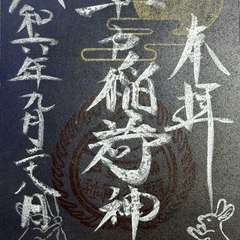 奉拝
稲荷神
令和六年九月二十八日